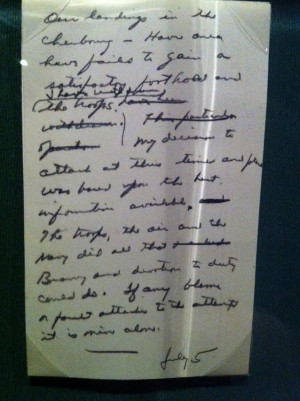 Our landings in the
Cherbourg - Havre area
have failed to gain a
satisfactory foothold and
I have withdrawn
the troops. have been
withdrawn This particular
operation My decision to
attack at this time and place
was based upon the best
information available,
The troops, the air and the
Navy did all that
Bravery and devotion to duty
could do. If any blame
or fault attaches to the attempt
it is mine alone.
July 5